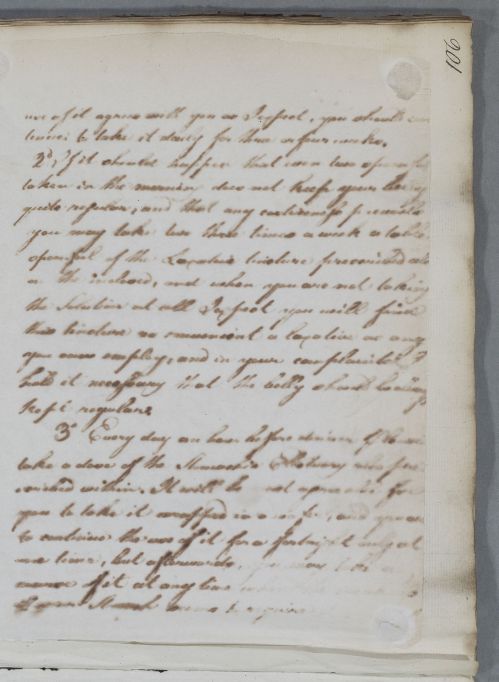 106
use of it agrees with you as I expect, you should con
tinue to take it daily for three or four weeks.
2d, If it should happen that even two spoonfuls
taken in the morning does not keep your belly
quite regular, and that any costiveness prevails
you may take two three times a week a table
spoonful of the Laxative tincture prescribed also
in the inclosed, and when you are not taking
the Solution at all I expect you will find
this tincture as convenient a laxative as any
you can employ, and in your complaints I
hold it necessary that the belly should be always
kept regular.
3o Every day an hour before dinner
take a dose of the Stomachic Electuary also pre
scribed within. It will be not agreeable for
you to take it wrapped in a wafer, and you are
to continue the use of it for a fortnight only at
one time, but afterwards, you may take a
of it at any time
your Stomach seems to require